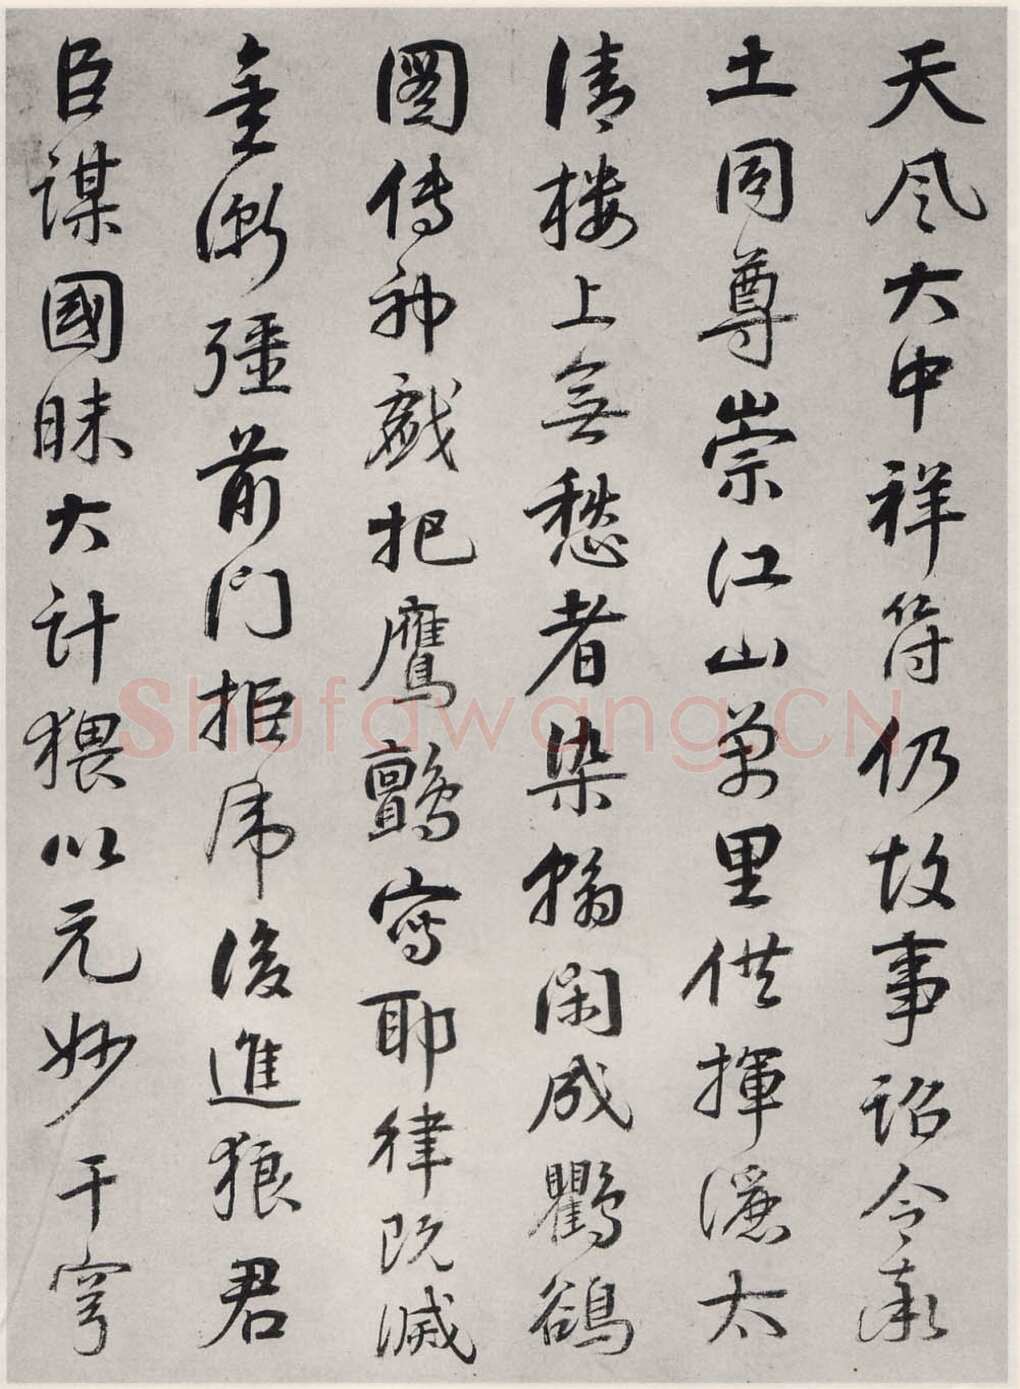 天風大中祥符仍故事詔令率
土同尊崇江山萬里供揮灑太
清樓上無愁者染翰閑成鸜鵒
圖傳神戲把鷹鸇寫耶律既滅
金漸彊前門拒虎後進狼君
臣謀國昧大計猥以元妙干穹
Shufawang.CN